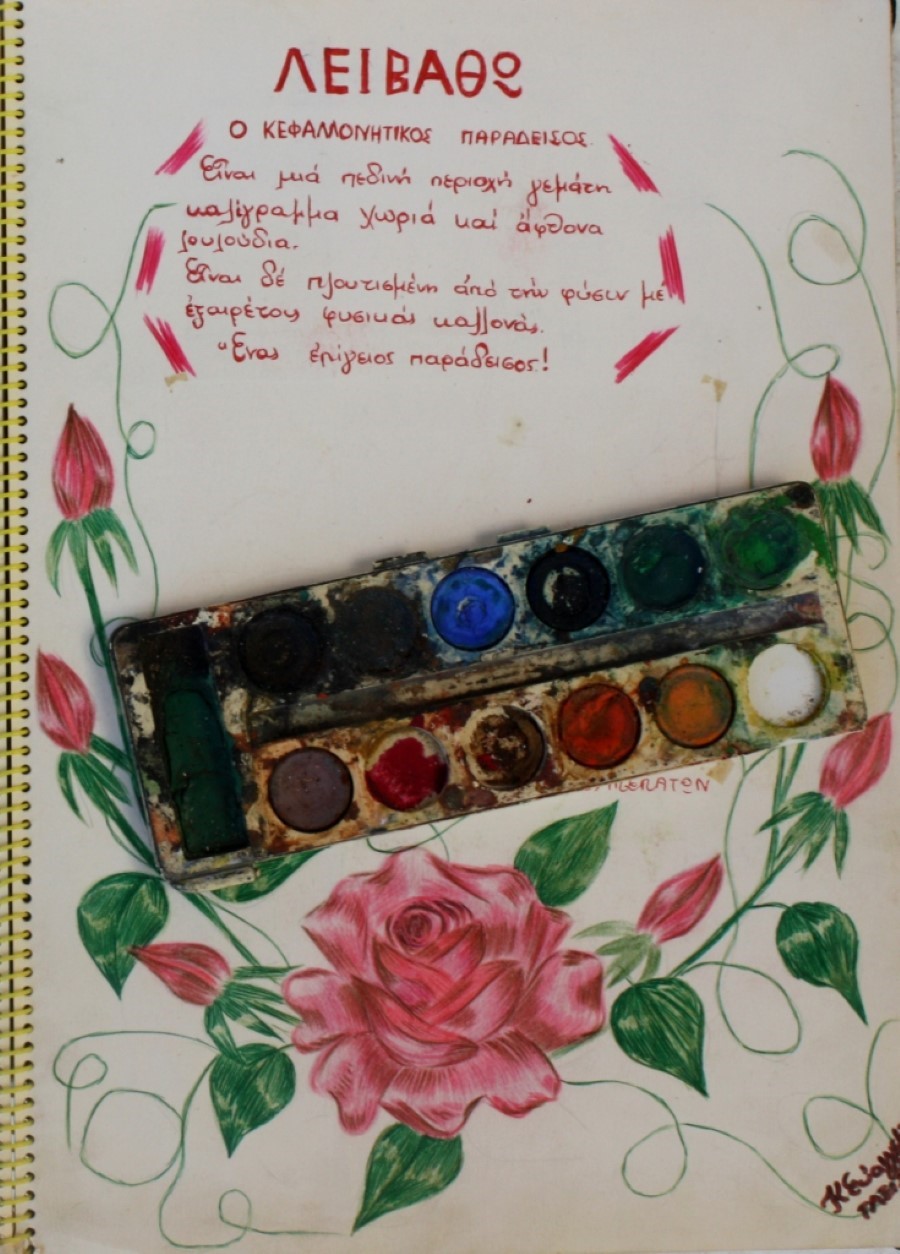 ΛΕΙΒΑΘΩ
Ο ΚΕΦΑΛΛΟΝΗΤΙΚΟΣ ΠΑΡΑΔΕΙΣΟΣ
Εἶναι μιά πεδινή περιοχή γεμάτη
καλίγραμμα χωριά καί ἄφθονα
λουλούδια.
Εἶναι δέ πλουτισμένη ἀπό τήν φύσιν μέ
ἐξαιρέτους φυσικάς καλλονάς.
Ἕνας ἐπίγειος παράδεισος!